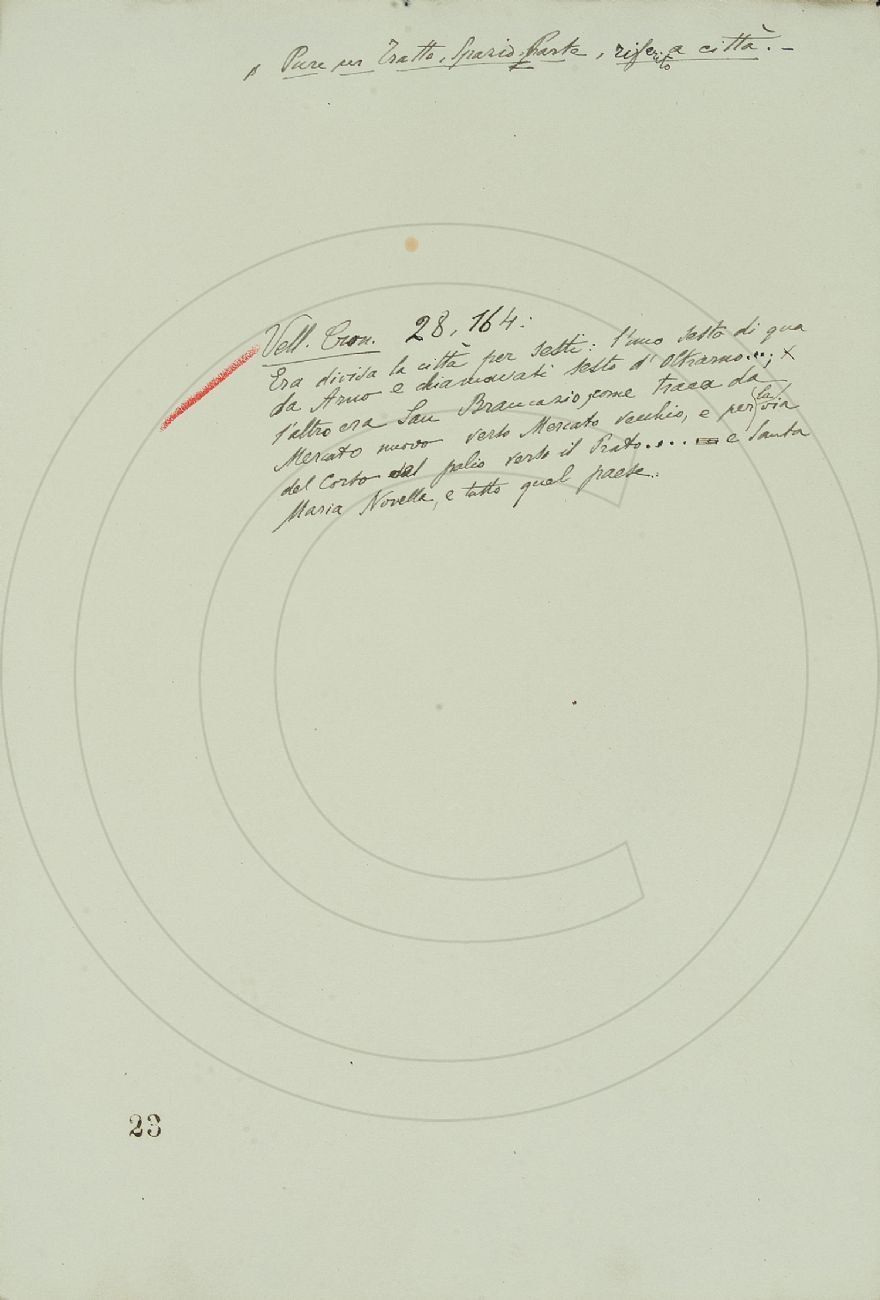 s Pure per Tratto, Spazio, Parte, riferito a città. –
Vell. Cron. 28, 164:
Era divisa la città per sesti: l'uno sesto di qua
da Arno e chiamavasi sesto d'Oltrarno...; x
l'altro era San Brancazio, come traea da
Mercato nuovo verso Mercato vecchio, e per (la) via
del Corso del palio verso il Prato.... e Santa
Maria Novella, e tutto quel paese.
23